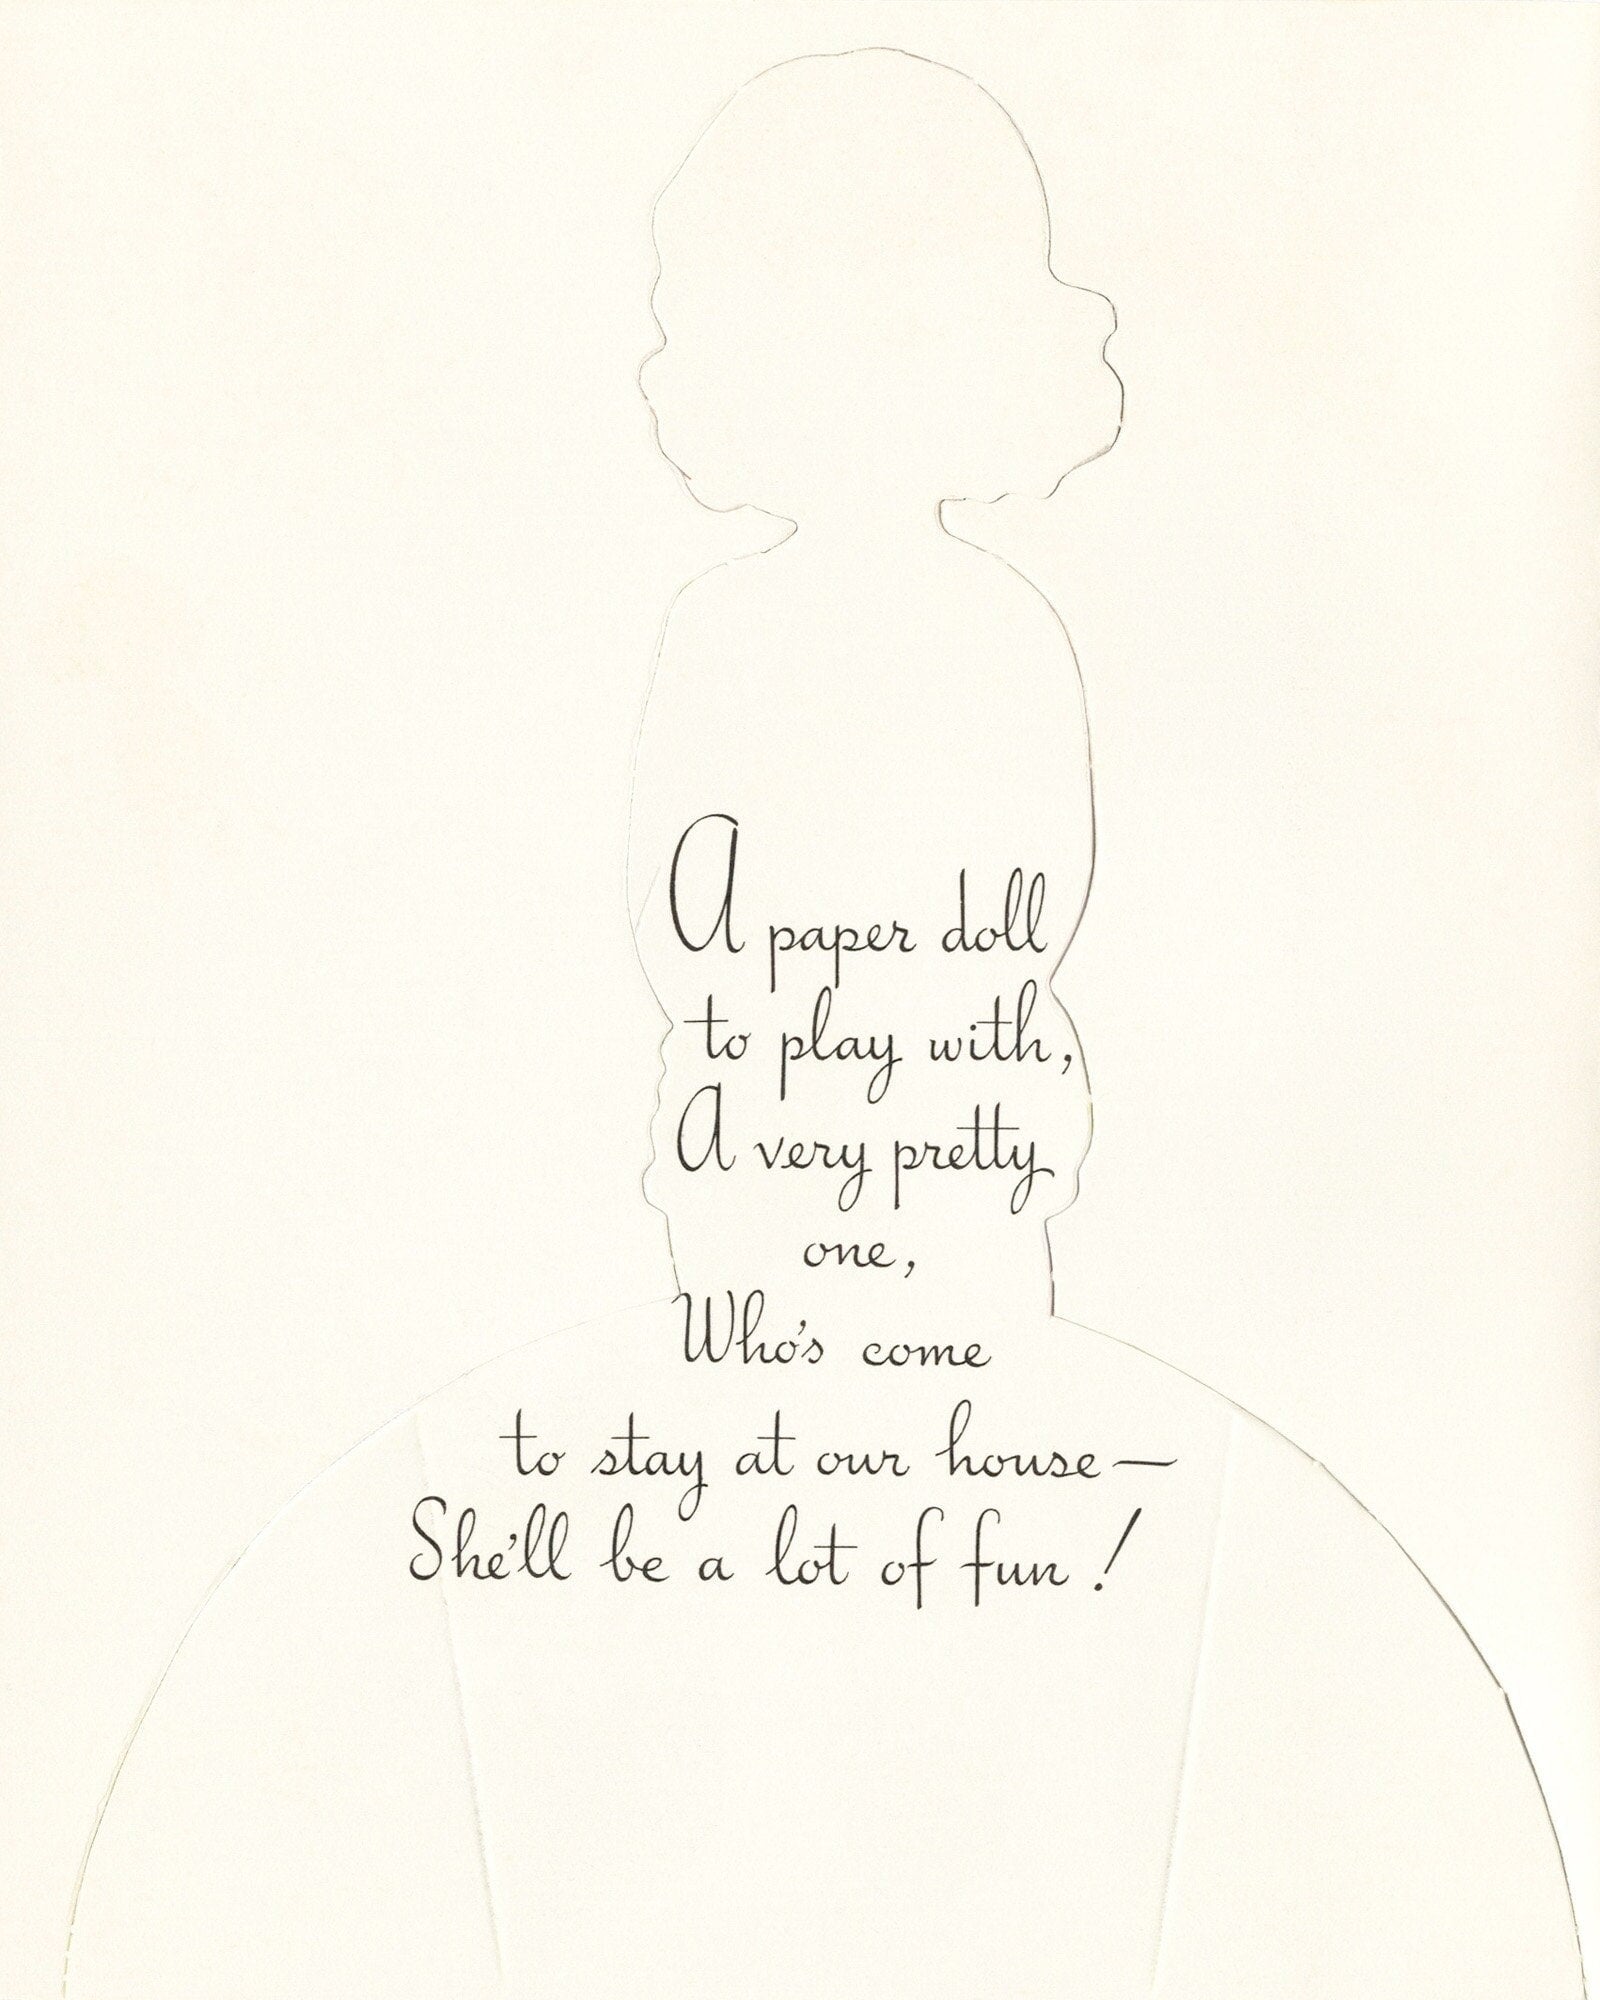 A paper doll
to play with,
A very pretty
one,
Who's come
to stay at our house—
She'll be a lot of fun!